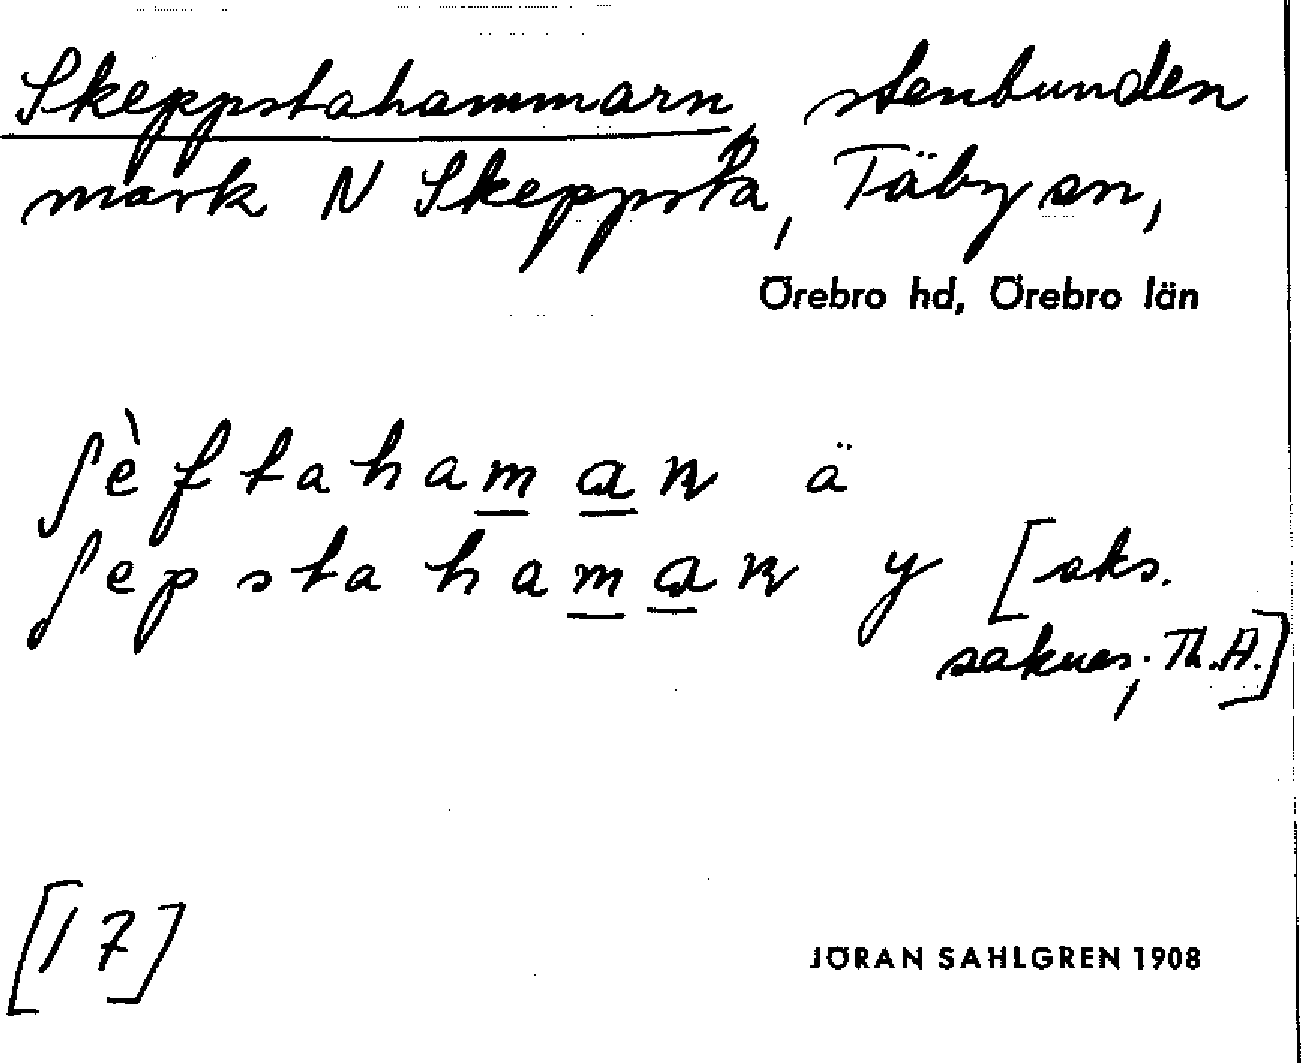 Skeppstahammarn, stenbunden
mark N Skeppsta, Täby sn,
Örebro hd, Örebro län
ʃèftahama̲n ä
ʃepstahama̲n y [aks.
saknas; Th.A.]
[17]
JÖRAN SAHLGREN 1908